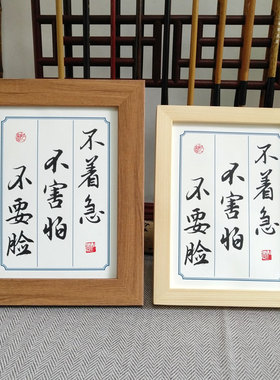 不着急
不害怕
不要脸
不着急
不害怕
不要脸